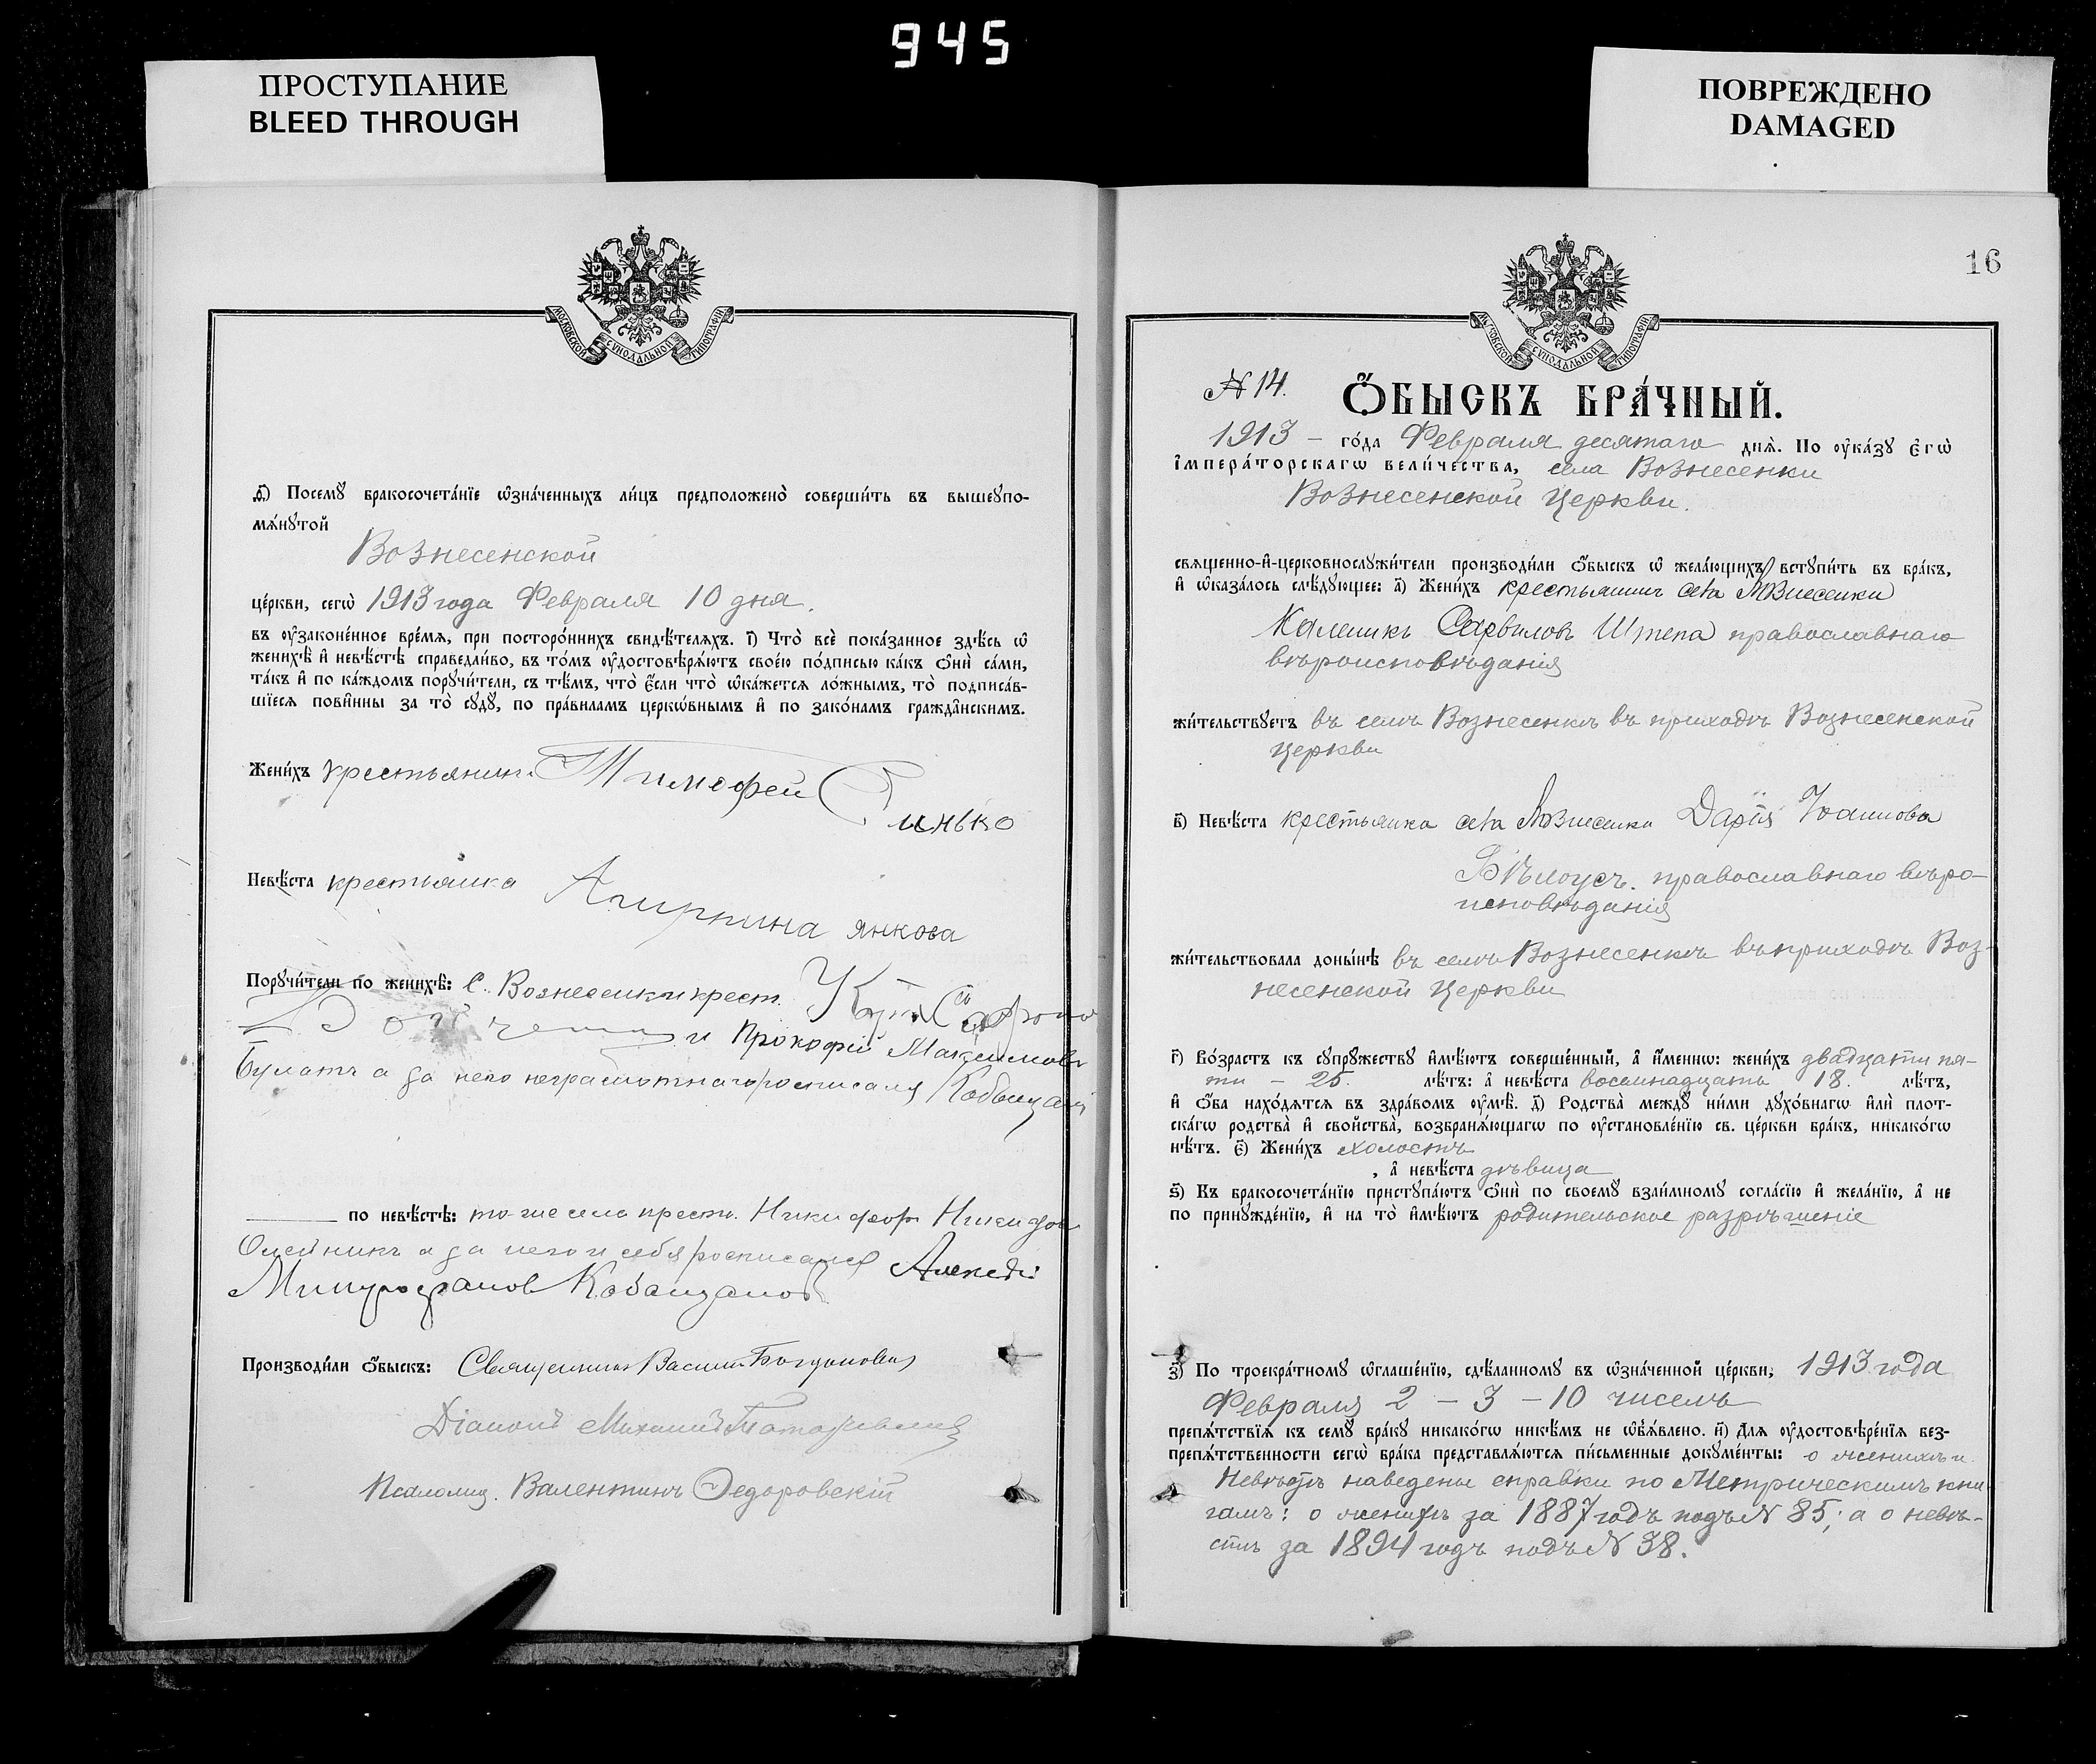 945
ПРОСТУПАНИЕ
BLEED THROUGH
ПОВРЕЖДЕНО
DAMAGED
МОСКОВСКОЙ СѴНОДАЛЬНОЙ ТИПОГРАФІИ
Посемꙋ бракосочета́нїе ѡ҆зна́ченныхъ ли́цъ предположено̀ соверши́ть въ вышеꙋпо-
мѧ́нꙋтой
Вознесенской
це́ркви, сегѡ̀ 1913 года Февраля 10 дня.
въ ᲂу҆законе́нное вре́мѧ, при посторо́ннихъ свидѣ́телѧхъ. і҃) Что̀ всѐ пока́занное здѣ́сь ѡ҆
женихѣ̀ и҆ невѣ́стѣ справедли́во, въ то́мъ ᲂу҆достовѣрѧ́ютъ свое́ю по́дписью ка́къ ѻ҆нѝ са́ми,
та́къ и҆ по ка́ждомъ порꙋчи́тели, съ тѣ́мъ, что̀ є҆́сли что̀ ѡ҆ка́жется ло́жнымъ, то̀ подписа́в-
шїеся пови́нны за то̀ сꙋдꙋ̀, по пра́виламъ церко́внымъ и҆ по зако́намъ гражда́нскимъ.
Жени́хъ крестьянин Тимофей
Синько
Невѣ́ста крестьянка Агирпина Янкова
Порꙋчи́тели по женихѣ̀: С. Вознесенки крест.
и Прокофій Максимовъ
Булатъ а за него неграмотнаго росписался
по невѣ́стѣ: того же села крест. Никифор
Олейникъ а за него и себя росписался Алексѣй
Митрофанов Кобанцанов
Производи́ли ѻ҆́быскъ: Священникъ Василій Богдановичъ
Діаконъ Михаилъ
Псаломщ. Валентинъ Федоровскій
16
МОСКОВСКОЙ СѴНОДАЛЬНОЙ ТИПОГРАФІИ
№ 14. Ѻ҆́БЫСКЪ БРА́ЧНЫЙ.
1913 – го́да Февраля десятаго днѧ̀. По ᲂу҆ка́зꙋ є҆гѡ̀
і҆мпера́торскагѡ вели́чества, села Вознесенки
Вознесенской Церкви.
свѧщенно-и҆-церковнослꙋжи́тели производи́ли ѻ҆́быскъ ѡ҆ жела́ющихъ встꙋпи́ть въ бра́къ,
и҆ ѡ҆каза́лось слѣ́дꙋющее: а҃) Жени́хъ крестьянинъ села Вознесенки
Каленикъ Саввиловъ Штепа православнаго
вѣроисповѣданія
жи́тельствꙋетъ въ селѣ Вознесенкѣ въ приходѣ Вознесенской
Церкви
в҃) Невѣ́ста крестьянка села Вознесенки Дарія Іоаннова
Бѣлоусъ. православнаго вѣро-
исповѣданія
жи́тельствовала доны́нѣ въ селѣ Вознесенкѣ въ приходѣ Воз-
несенской Церкви
г҃) Во́зрастъ къ сꙋпрꙋ́жествꙋ и҆мѣ́ютъ соверше́нный, а҆ и҆́меннѡ: жени́хъ двадцати пя-
ти – 25. лѣ́тъ: а҆ невѣ́ста восемнадцать 18. лѣ́тъ,
и҆ ѻ҆́ба нахо́дятся въ здра́вомъ ᲂу҆мѣ̀. д҃) Родства̀ междꙋ̀ ни́ми дꙋхо́внагѡ и҆лѝ плот-
ска́гѡ родства̀ и҆ свойства̀, возбранѧ́ющагѡ по ᲂу҆становле́нїю св. це́ркви бра́къ, никако́гѡ
нѣ́тъ. є҃) Жени́хъ холостъ
, а҆ невѣ́ста дѣвица
ѕ҃) Къ бракосочета́нїю пристꙋпа́ютъ ѻ҆нѝ по своемꙋ̀ взаи́мномꙋ согла́сїю и҆ жела́нїю, а҆ не
по принꙋжде́нїю, и҆ на то̀ и҆мѣ́ютъ родительское разрѣшеніе
з҃) По троекра́тномꙋ ѡ҆глаше́нїю, сдѣ́ланномꙋ въ ѡ҆зна́ченной це́ркви, 1913 года
Февраля 2 – 3 – 10 чиселъ
препѧ́тствїя къ семꙋ̀ бра́кꙋ никако́гѡ никѣ́мъ не ѡ҆б̾ѧ́влено. и҃) Для ᲂу҆достовѣре́нїя без-
препѧ́тственности сегѡ̀ бра́ка представлѧ́ются пи́сьменные докꙋме́нты: о женихѣ и
Невѣстѣ наведены справки по Метрическимъ кни-
гамъ: о женихѣ за 1887 годъ подъ № 85; а о невѣ-
стѣ за 1894 годъ подъ № 38.